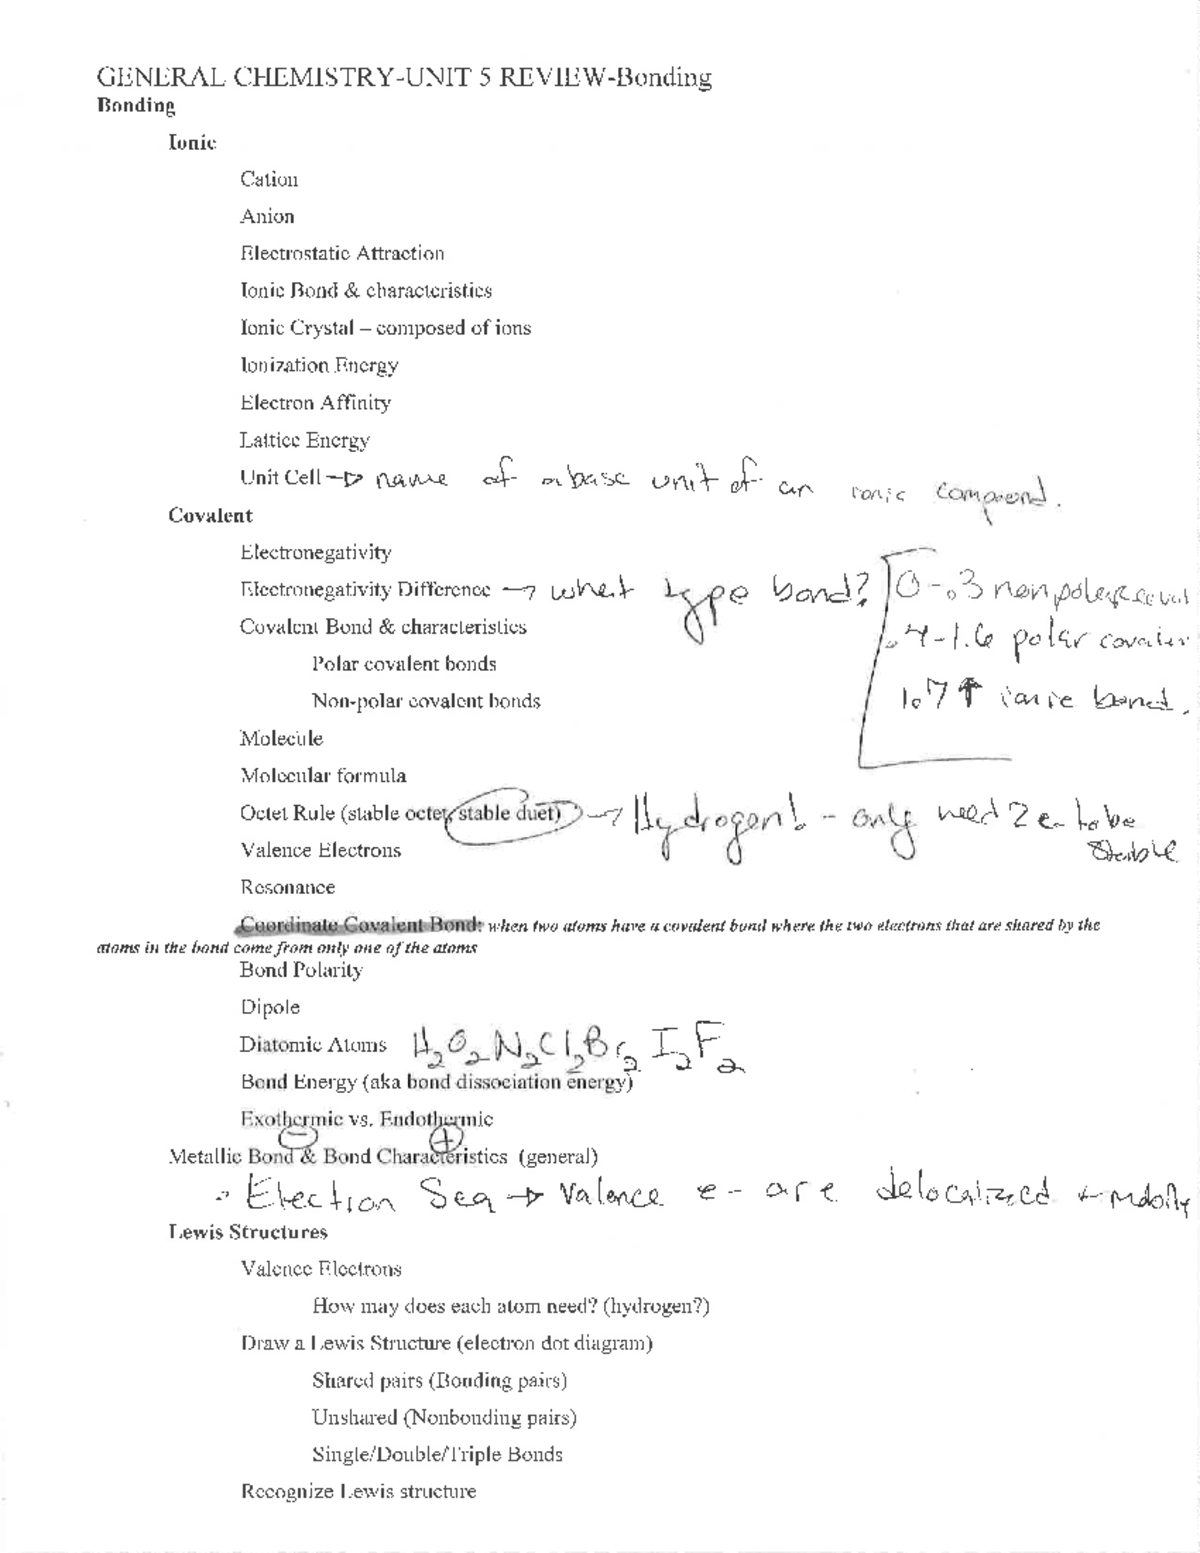 GENERAL CHEMISTRY-UNIT 5 REVIEW-Bonding
Bonding
Ionic
Cation
Anion
Electrostatic Attraction
Ionic Bond & characteristics
Ionic Crystal – composed of ions
Ionization Energy
Electron Affinity
Lattice Energy
Unit Cell → name of a base unit of an ionic compound.
Covalent
Electronegativity
Electronegativity Difference → what type bond? 0-.3 nonpolar
Covalent Bond & characteristics .4-1.6 polar
Polar covalent bonds
Non-polar covalent bonds 1.7 ↑ ionic bond.
Molecule
Molecular formula
Octet Rule (stable octet, stable duet) → Hydrogen! - only need 2 e- to be
stable
Valence Electrons
Resonance
Coordinate Covalent Bond: when two atoms have a covalent bond where the two electrons that are shared by the
atoms in the bond come from only one of the atoms
Bond Polarity
Dipole
Diatomic Atoms H₂O₂N₂Cl₂Br₂I₂F₂
Bond Energy (aka bond dissociation energy)
Exothermic vs. Endothermic
- +
Metallic Bond & Bond Characteristics (general)
Electron Sea → Valence e- are delocalized
Lewis Structures
Valence Electrons
How may does each atom need? (hydrogen?)
Draw a Lewis Structure (electron dot diagram)
Shared pairs (Bonding pairs)
Unshared (Nonbonding pairs)
Single/Double/Triple Bonds
Recognize Lewis structure